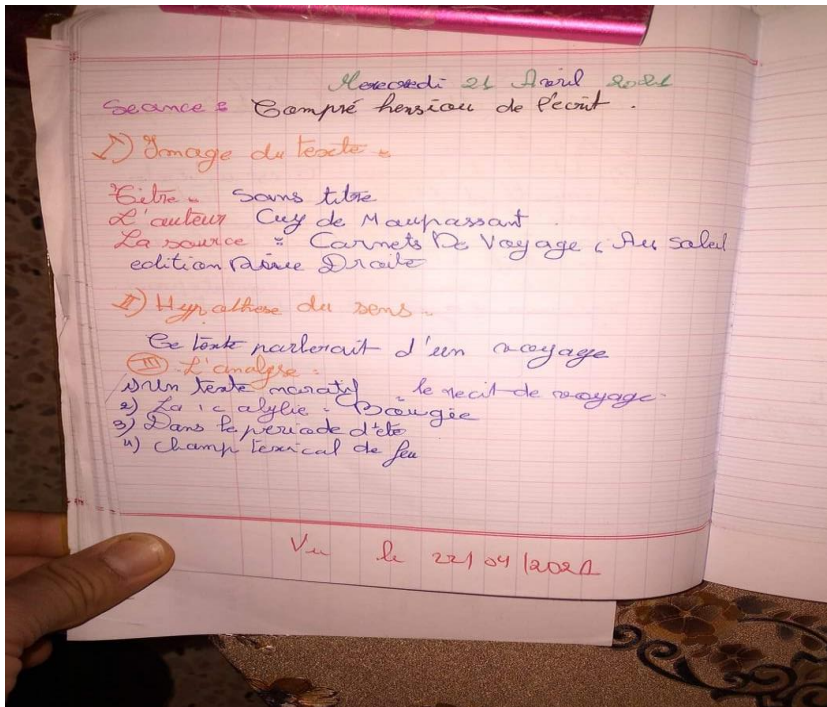 Mercredi 21 Avril 2021
Seance : Compré hension de l'ecrit .
I) Image du texte :
Titre : Sans titre
L'auteur Guy de Maupassant .
La source : Carnets De Voyage , Au soleil
edition Droite
II) Hypothese du sens :
Ce texte parlerait d'un voyage
III) L'analyse :
1) Un texte narratif : le recit de voyage .
2) La Kalylie : Bougie
3) Dans la periode d'été
4) Champ lexical de feu
Vu le 22/04/2021